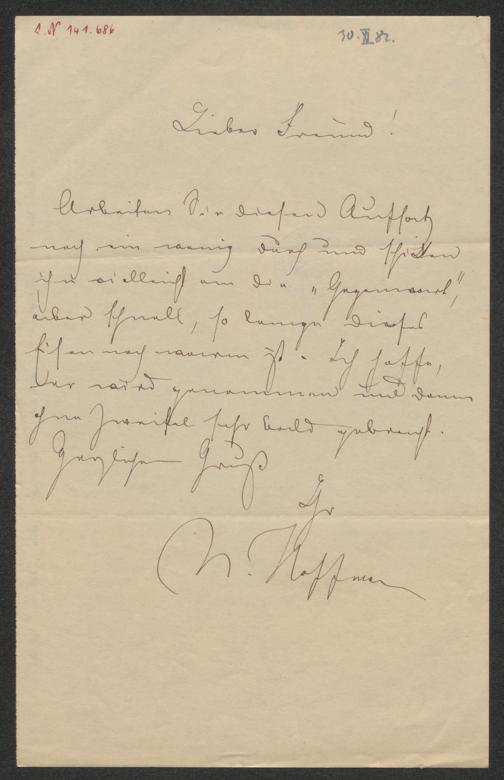 I. N 141.686
30. XI 82.
Lieber Freund!
Arbeiten Sie diesen Aufsatz
noch ein wenig durch und schicken
ihn vielleicht an die „Gegenwart“,
aber schnell, so lange dieses
Eisen noch warm ist. Ich hoffe,
der wird genommen und dann
ohne Zweifel sehr bald gebracht.
Herzlichen Gruß
Ihr
N. Hoffman